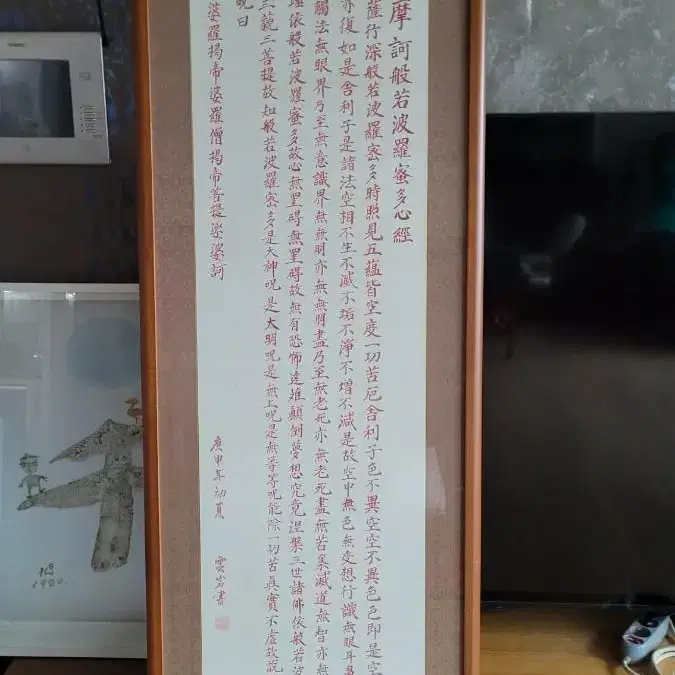 摩訶般若波羅蜜多心經
薩行深般若波羅蜜多時照見五蘊皆空度一切苦厄舍利子色不異空空不異色色即是空
亦復如是舍利子是諸法空相不生不滅不垢不淨不增不減是故空中無色無受想行識無眼耳鼻
觸法無眼界乃至無意識界無無明亦無無明盡乃至無老死亦無老死盡無苦集滅道無智亦無
埵依般若波羅蜜多故心無罣碍無罣碍故無有恐怖遠離顛倒夢想究竟涅槃三世諸佛依般若波
三藐三菩提故知般若波羅蜜多是大神呪是大明呪是無上呪是無等等呪能除一切苦真實不虛故說
呪曰
婆羅揭帝婆羅僧揭帝菩提娑婆訶
庚申年初夏 雲岩書
1980.